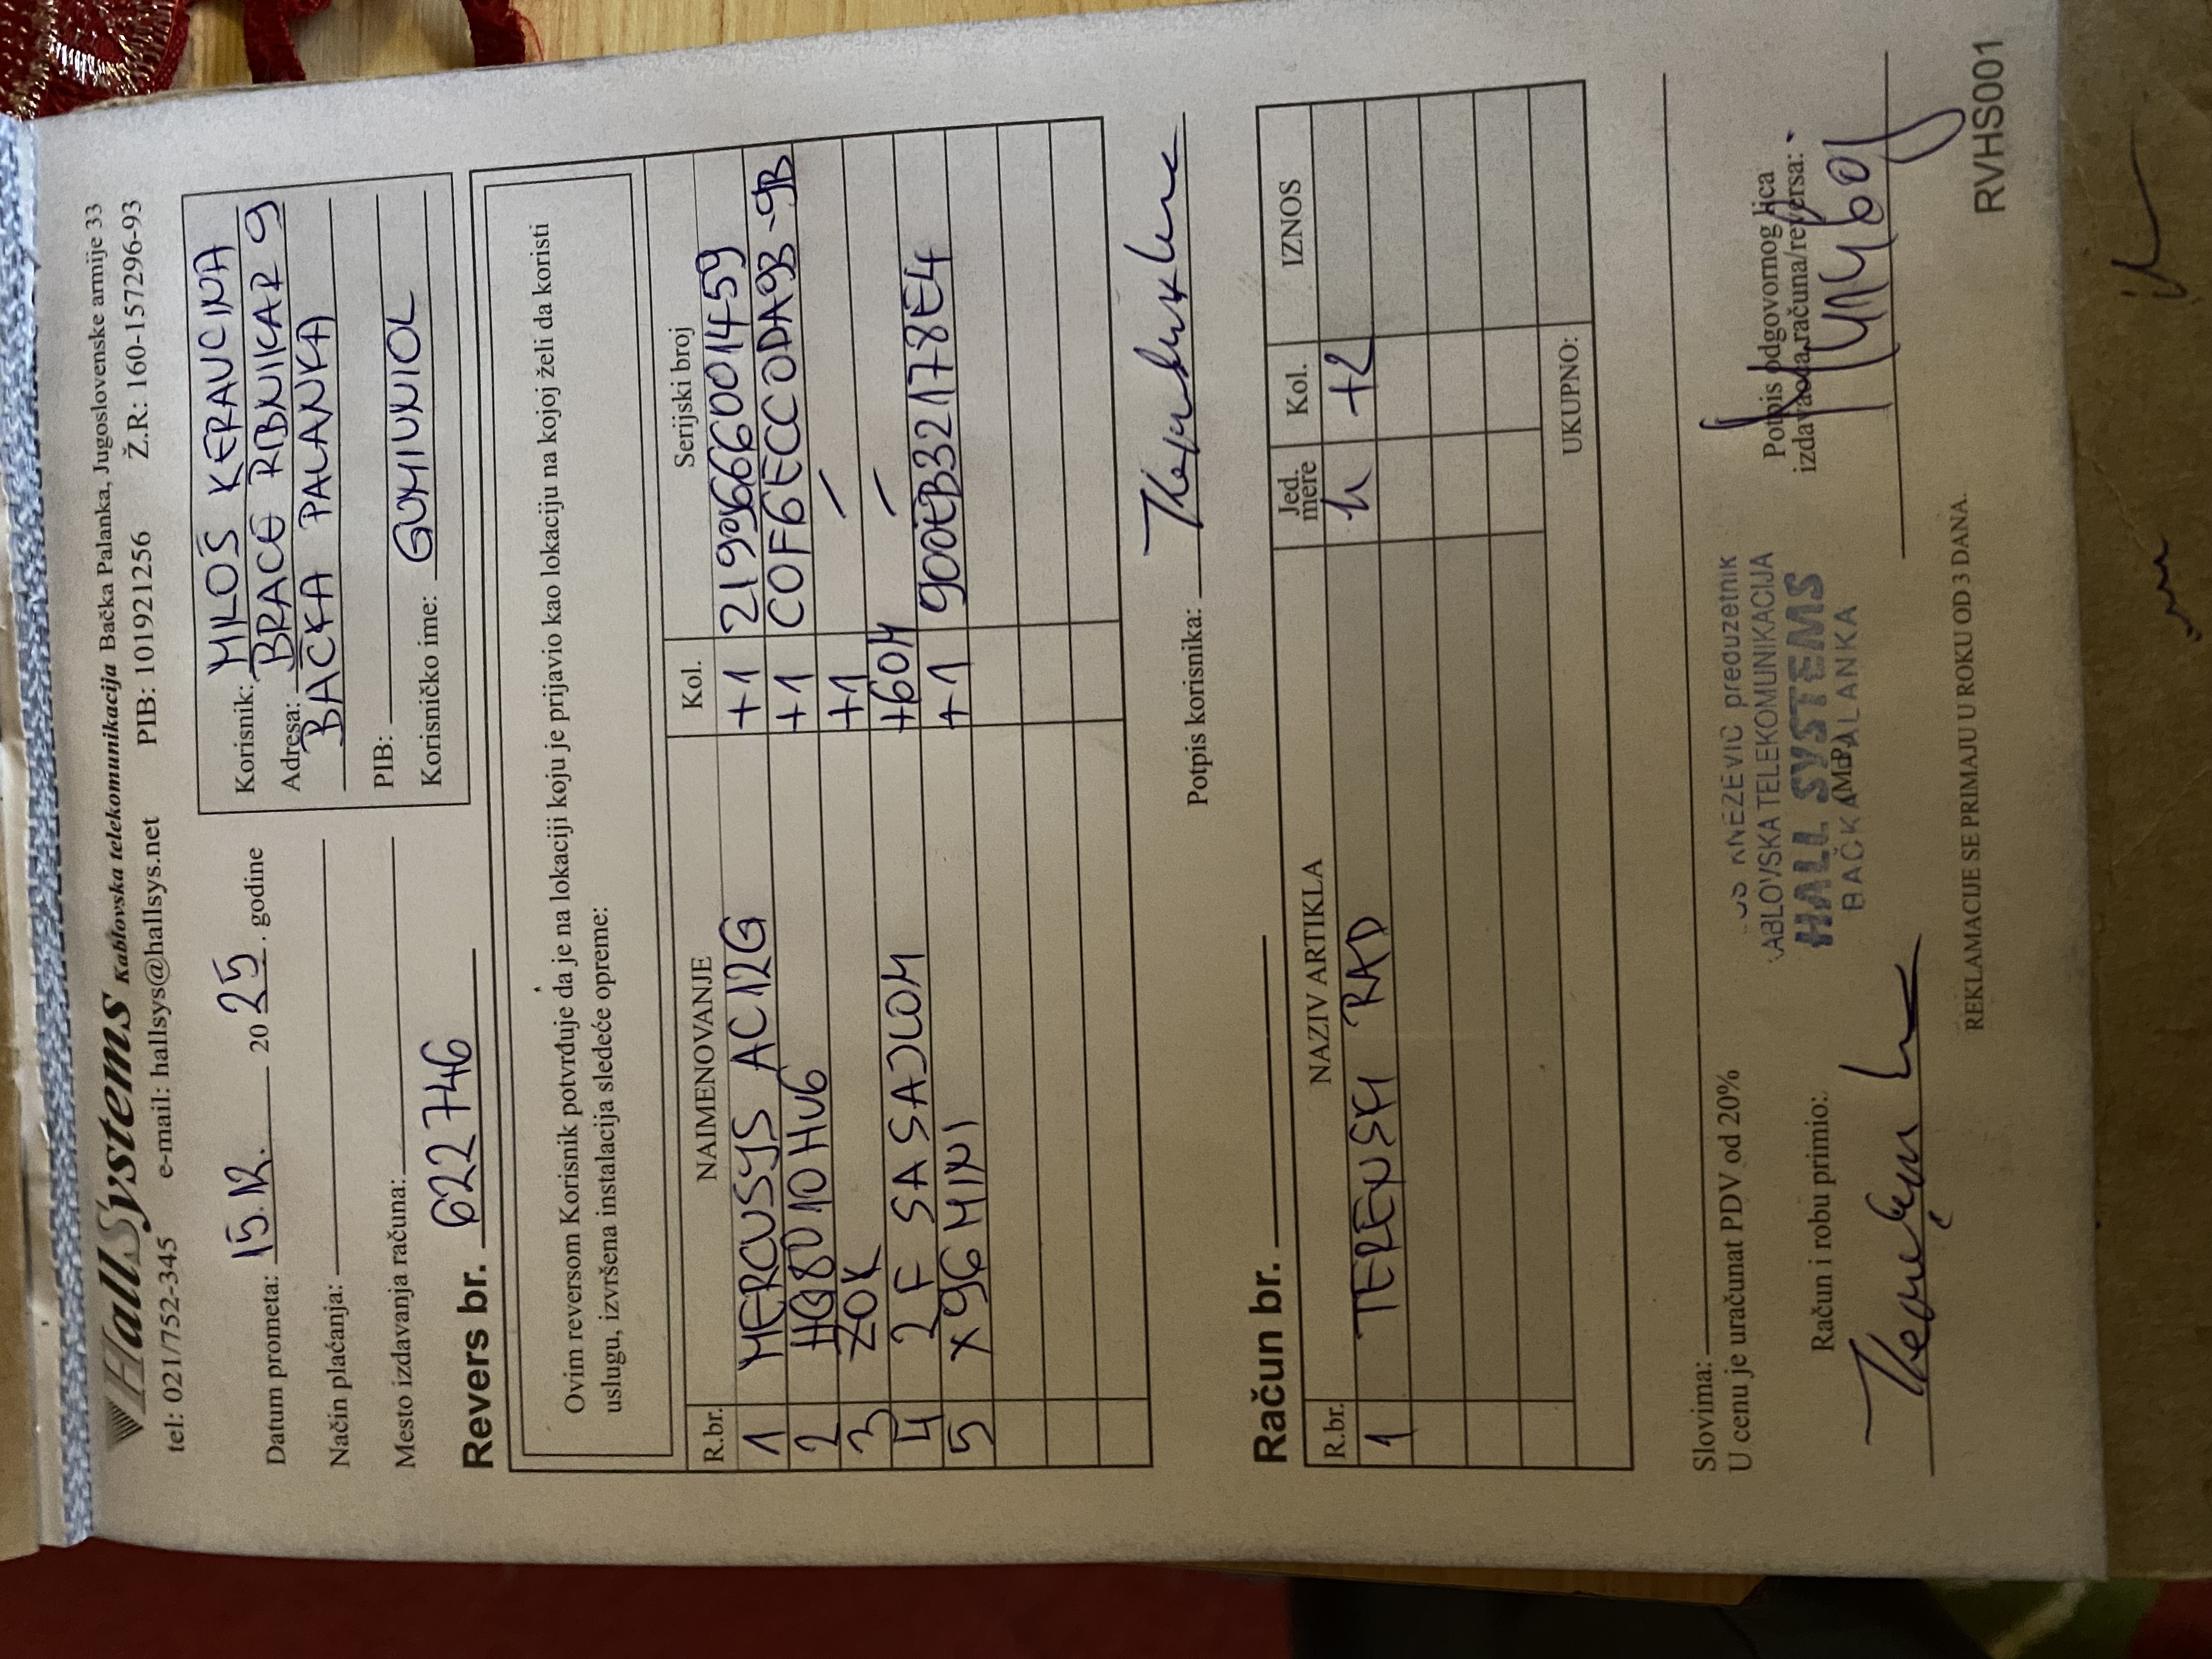 HallSystems Kablovska telekomunikacija Bačka Palanka, Jugoslovenske armije 33
tel: 021/752-345 e-mail: hallsys@hallsys.net PIB: 101921256 Ž.R: 160-157296-93
Datum prometa: 15.12. 2025. godine
Način plaćanja:
Mesto izdavanja računa:
Korisnik: MILOŠ KERAUCINA
Adresa: BRAĆE RIBNIKAR 9
BAČKA PALANKA
PIB:
Korisničko ime: GUMIUNIOL
Revers br. 622746
Ovim reversom Korisnik potvrđuje da je na lokaciji koju je prijavio kao lokaciju na kojoj želi da koristi
uslugu, izvršena instalacija sledeće opreme:
R.br. NAIMENOVANJE Kol. Serijski broj
1 MERCUSYS AC12G +1
2 HG8010Hu6 +1 C0F6ECC0DA9B-9B
3 ZOK +1 /
4 2F SA SAJLOM +60M /
5 X96 MINI +1 900EB32178E4
Potpis korisnika:
Račun br.
R.br. NAZIV ARTIKLA Jed. mere Kol. IZNOS
1 TERENSKI RAD h +2
UKUPNO:
Slovima:
U cenu je uračunat PDV od 20%
Račun i robu primio:
KNEZEVIĆ preduzetnik
KABLOVSKA TELEKOMUNIKACIJA
HALL SYSTEMS
BAČKA PALANKA
(M.P.)
Potpis odgovornog lica
izdavaoca računa/reversa:
REKLAMACIJE SE PRIMAJU U ROKU OD 3 DANA.
RVHS001